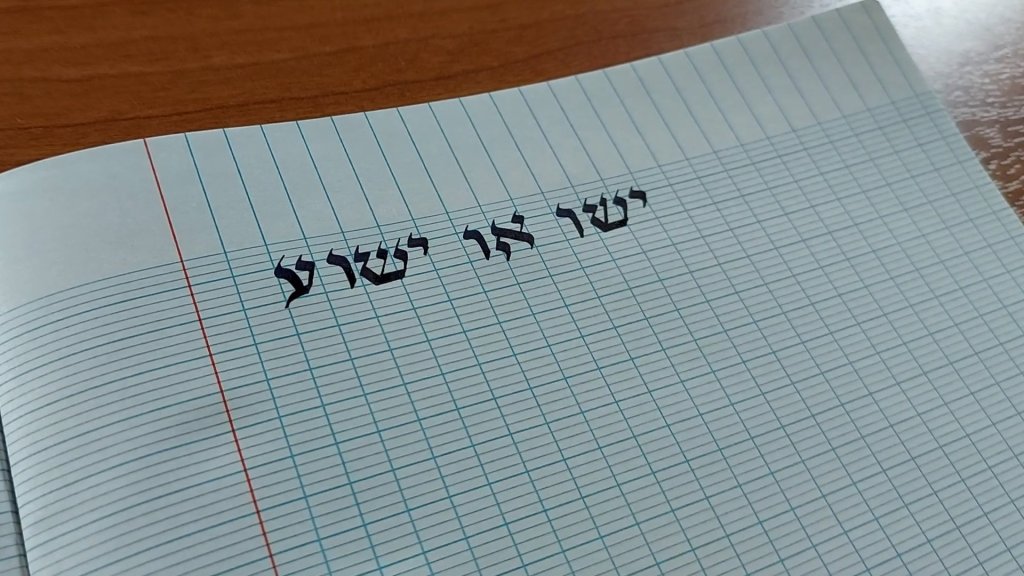 ישו או ישוע